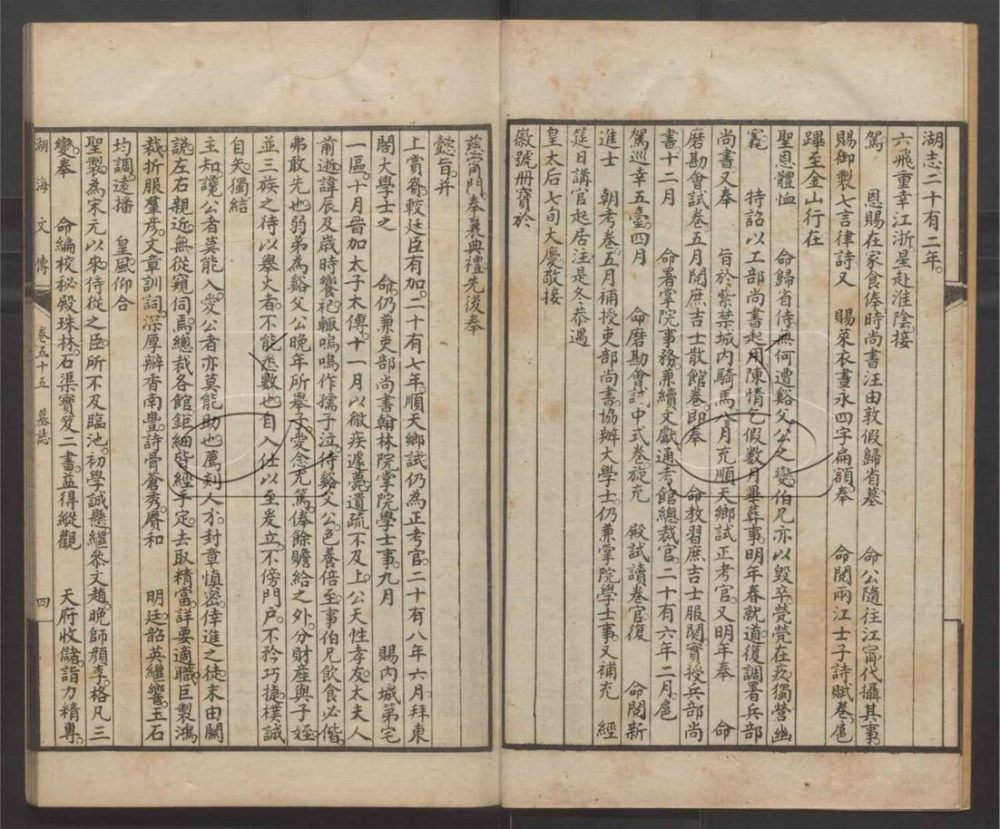 湖志二十有二年。
六飛重幸江浙星赴淮陰。接
駕　恩賜在家食俸時尚書汪由敦假歸省墓　命公隨往江甯代攝其事。
賜御製七言律詩又　賜萊衣晝永四字扁額奉　命閱兩江士子詩賦卷。扈
蹕至金山行在
聖恩體恤　命歸省侍。無何遭谿父公之變。伯兄亦以毀卒。煢煢在疚獨營幽
竁　特詔以工部尚書起用陳情乞假數月畢葬事明年春就道。復調署兵部
尚書。又奉　旨於紫禁城內騎馬八月充順天鄉試正考官。又明年奉　命
磨勘會試卷。五月閱庶吉士散館卷。即奉　命教習庶吉士服闋實授兵部尚
書。十二月　命署掌院事務。兼續文獻通考館總裁官。二十有六年二月。扈
駕巡幸五臺。四月　命磨勘會試中式卷。旋充　殿試讀卷官。復　命閱新
進士　朝考卷。五月補授吏部尚書。協辦大學士。仍兼掌院學士事又補充　經
筵日講官起居注是冬恭遇
皇太后七旬大慶敬接
徽號冊寶於
慈甯門奉襄典禮先後奉
懿旨。并
上賞賚。較廷臣有加。二十有七年。順天鄉試仍為正考官。二十有八年六月拜東
閣大學士之　命。仍兼吏部尚書翰林院掌院學士事。九月　賜內城第宅
一區。十月晉加太子太傅。十一月以微疾遽薨。遺疏不及上。公天性孝友。太夫人
前逝。諱辰及歲時饗祀。輒嗚嗚作孺子泣。侍谿父公。色養倍至事伯兄飲食必偕。
弗敢先也弱弟為谿父公晚年所舉子。愛念尤篤。俸餘贍給之外。分財產與子姪
並三族之待以舉火者。不能悉數也自入仕以至爰立。不傍門戶。不矜巧捷。樸誠
自矢。獨結
主知。讒公者莫能入。愛公者亦莫能助也薦剡人才。封章慎密倖進之徒。末由關
說。左右親近。無從窺伺。為總裁各館。鉅細皆經手定。去取精當。詳要適職。巨製鴻
裁。折服羣彥。文章訓詞。深厚。瓣香南豐。詩骨蒼秀。賡和　明廷。韶英繼響。玉石
均調。遠播　皇風。仰合
聖製。為宋元以來。侍從之臣。所不及臨池。初學誠懸。繼參文趙。晚師顏李。格凡三
變。奉　命編校祕殿珠林。石渠寶笈二書。益得縱觀　天府收儲。詣力精專。
湖海文傳　卷五十五　墓誌　四